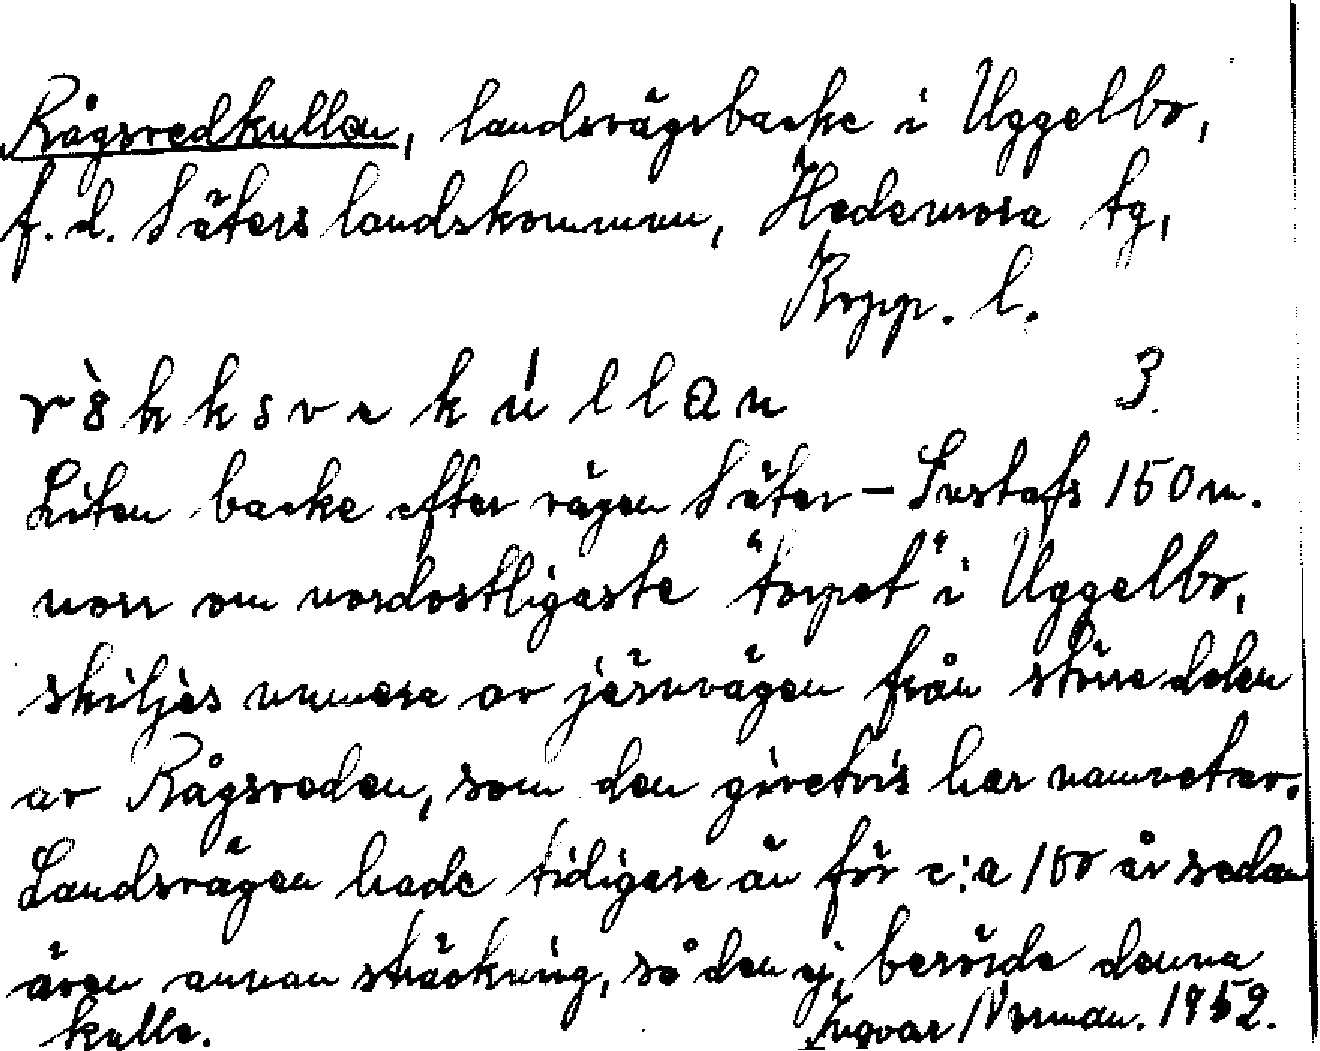 Rågsvedkullen, landsvägsbacke i Uggelbo,
f. d. Säters landskommun, Hedemora tg,
Kopp. l.
kúllan 3.
Liten backe efter vägen Säter - Gustafs 150 m.
norr om nordostligaste "torpet" i Uggelbo,
skiljes numera av järnvägen från större delen
av Rågsveden, som den givetvis har namnet av.
Landsvägen hade tidigare än för c:a 100 år sedan
även annan sträckning, så den ej berörde denna
kulle. Ingvar Norman. 1952.